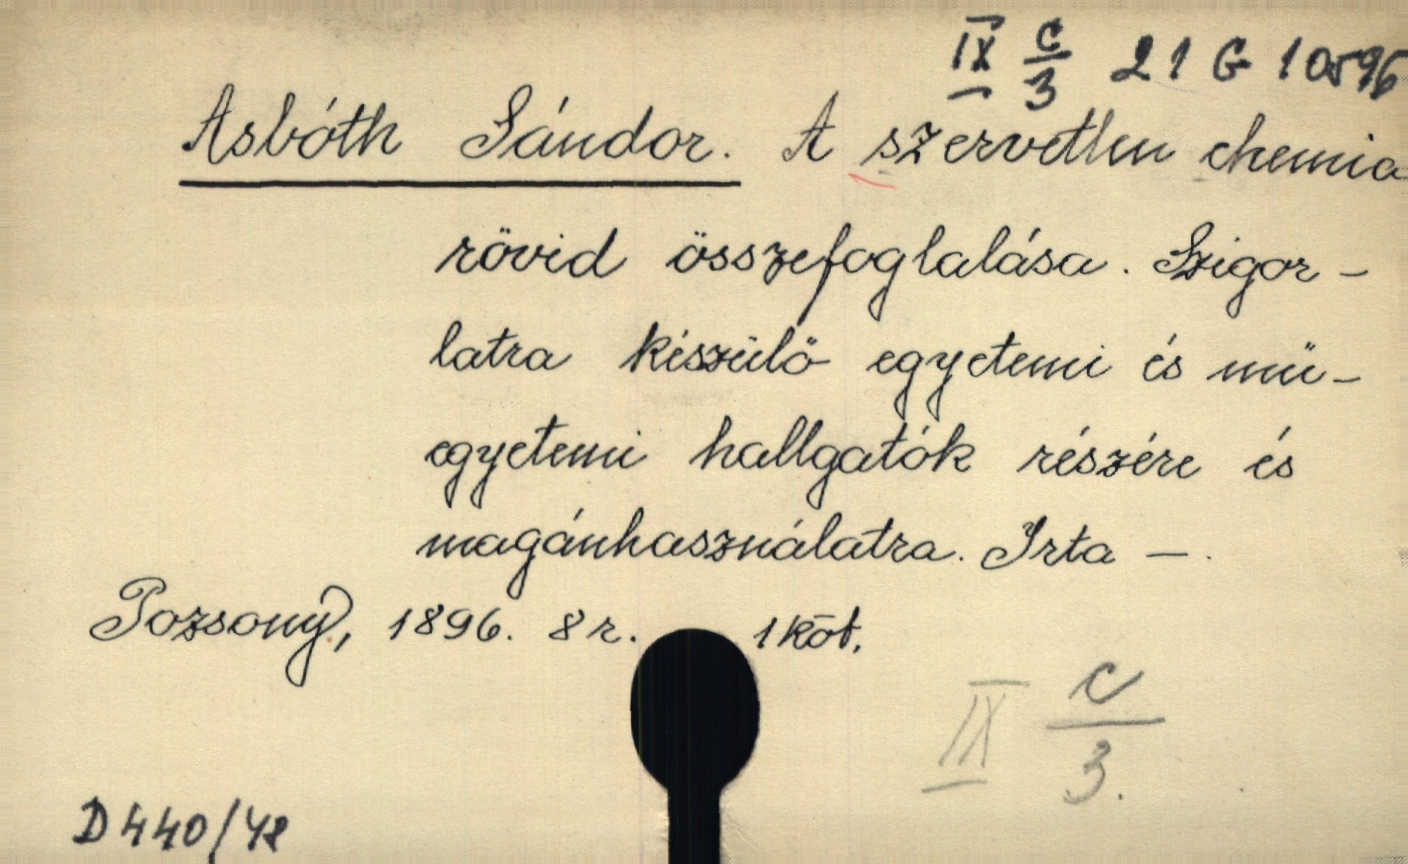 IX c/3 21 G 10596
Asbóth Sándor. A szervetlen chemia
rövid összefoglalása. Szigor-
latra készülő egyetemi és mű-
egyetemi hallgatók részére és
magánhasználatra. Irta —.
Pozsony, 1896. 8r. 1 köt.
IX c/3.
D 440/48